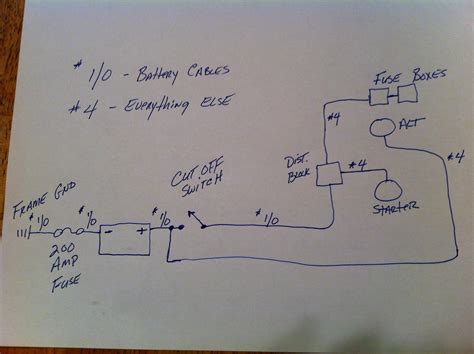 #1/0 - Battery Cables
#4 - Everything Else
Fuse Boxes
#4
Alt
#4
Dist.
Block
#4
Starter
Cut off
Switch
#1/0
#1/0
Frame Gnd
#1/0
#1/0
- +
200
Amp
Fuse